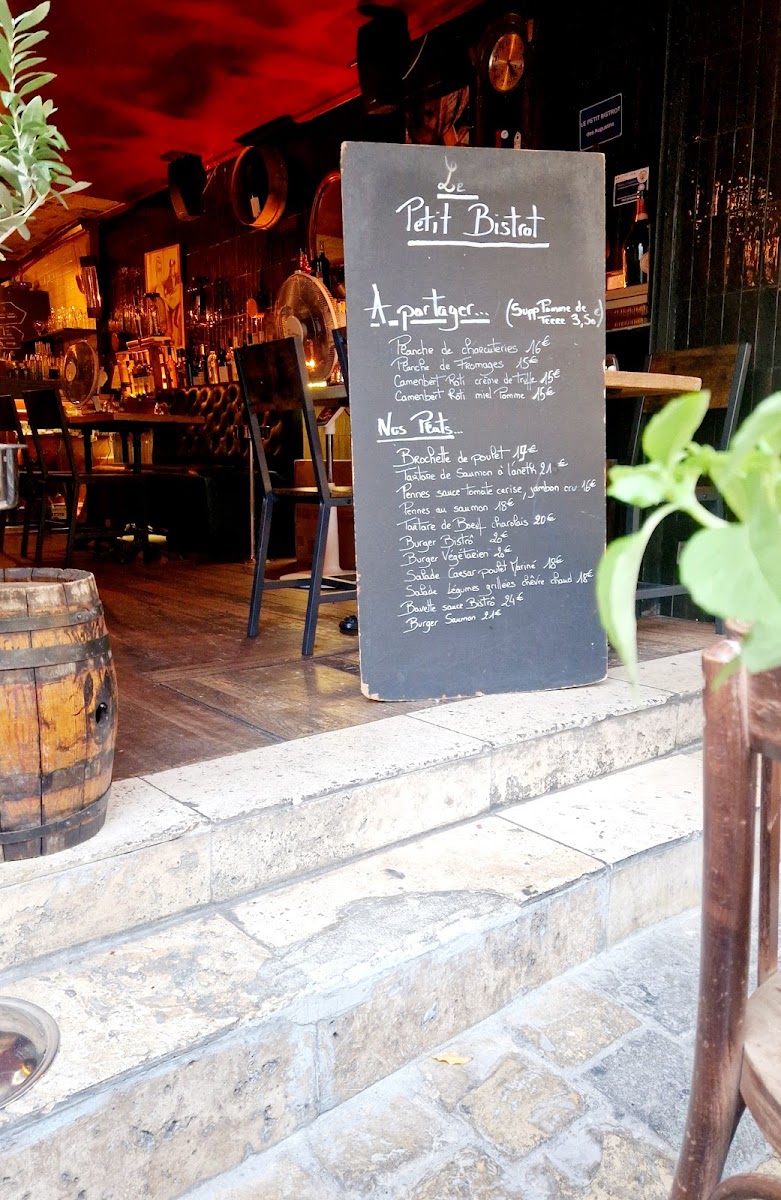 Le
Petit Bistrot
A partager... (Supp Pomme de
Terre 3,50€)
Planche de charcuteries 16€
Planche de Fromages 15€
Camembert Roti crème de truffe 15€
Camembert Roti miel Pomme 15€
Nos Plats...
Brochette de poulet 19€
Tartare de Saumon à l'aneth 21€
Pennes sauce tomate cerise, jambon cru 16€
Pennes au saumon 18€
Tartare de Boeuf charolais 20€
Burger Bistrô 20€
Burger Végétarien 20€
Salade Caesar poulet Mariné 18€
Salade Légumes grillées chèvre chaud 18€
Bavette sauce Bistrô 24€
Burger Saumon 21€
LE PETIT BISTROT
des Augustins